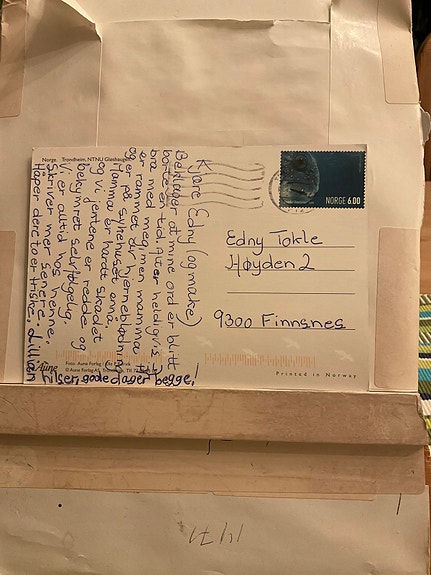 Norge. Trondheim, NTNU Gløshaugen
Kjære Edny (og make)
Beklager at mine ord er blitt
borte en tid. Alt er heldigvis
bra med meg, men mamma
er rammet av hjerneblødning
og er på sykehuset ennå.
Mamma er hardt skadet
og vi jentene er redde og
bekymret selvfølgelig.
Vi er alltid hos henne.
Skriver mer senere.
Håper dere to er friske. Lillian
tilser, gode dager begge!
NORGE 6.00
Edny Tokle
Høyden 2
9300 Finnsnes
Aune
Foto: Aune Forlag
© Aune Forlag AS, Trondheim
Printed in Norway